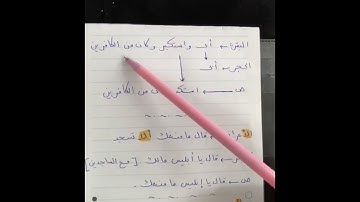 البقرة ← أبى واستكبر وكان من الكافرين
الحجر ← أبى
ص ← استكبر من الكافرين
قال ما منعك ألا تسجد
قال يا إبليس مالك [مع الساجدين]
ص ← قال يا إبليس ما منعك